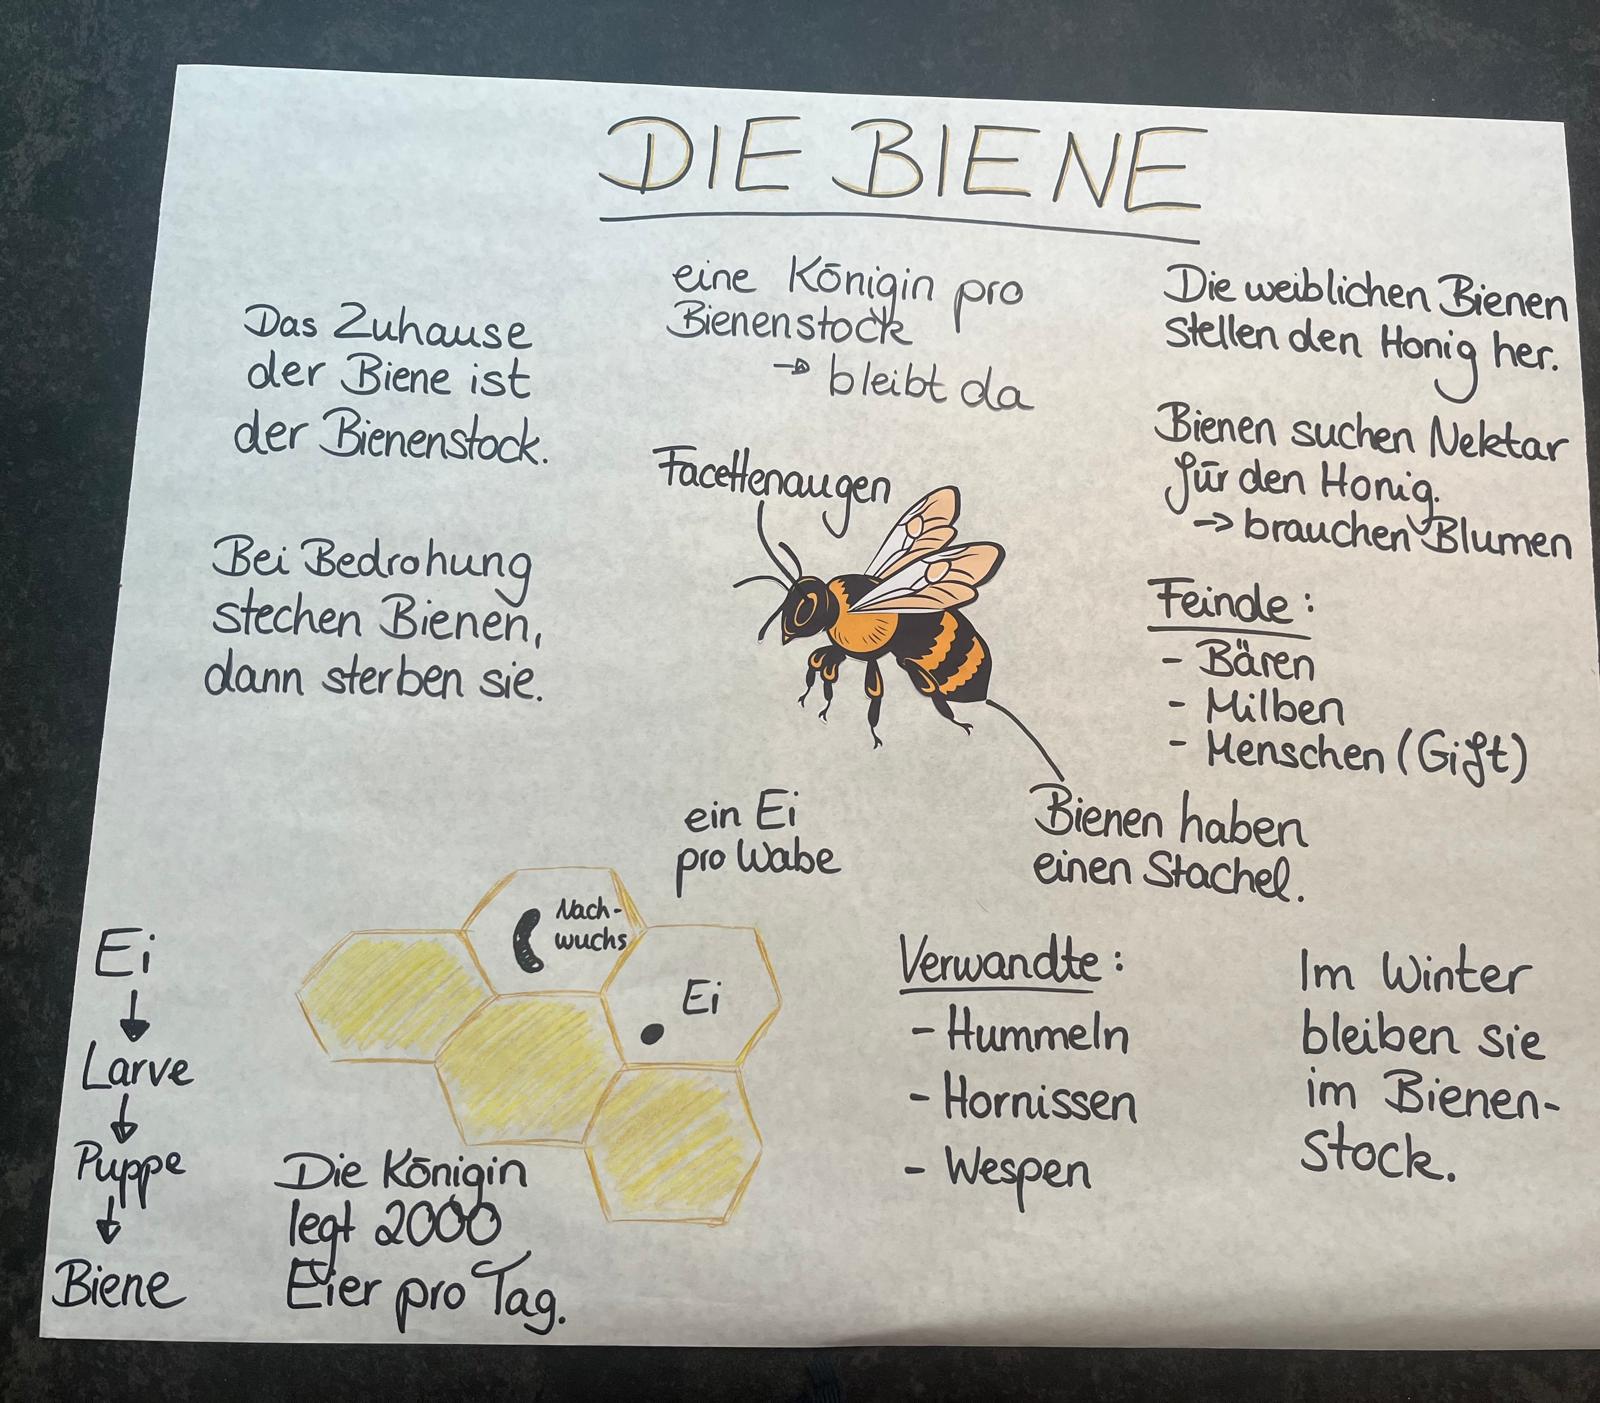 DIE BIENE
Das Zuhause
der Biene ist
der Bienenstock.
eine Königin pro
Bienenstock
→ bleibt da
Die weiblichen Bienen
stellen den Honig her.
Bienen suchen Nektar
für den Honig.
→ brauchen Blumen
Facettenaugen
Bei Bedrohung
stechen Bienen,
dann sterben sie.
Feinde:
- Bären
- Milben
- Menschen (Gift)
Bienen haben
einen Stachel.
ein Ei
pro Wabe
Nach-
wuchs
Ei
Ei
↓
Larve
↓
Puppe
↓
Biene
Die Königin
legt 2000
Eier pro Tag.
Verwandte:
- Hummeln
- Hornissen
- Wespen
Im Winter
bleiben sie
im Bienen-
stock.